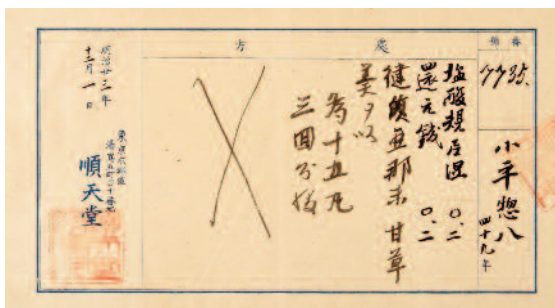 番號
7735.
小平惣八
四十九年
處方
塩酸規尼涅 〇、二
還元鉄 〇、二
健質亜那末 甘草
羔ヲ以
為十五丸
三回分服
明治廿三年
十二月一日
東京本郷區
湯島五町目十番地
順天堂